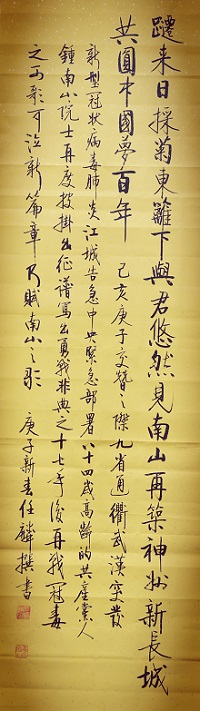 来日採菊東籬下與君悠然見南山再築神州新長城
共圓中國夢百年 己亥庚子交替之際九省通衢武漢突發
新型冠狀病毒肺炎江城告急中央緊急部署八十四歲高齡的共産黨人
鍾南山院士再度披掛出征譜寫出勇戰非典之十七年後再戰冠毒
之可歌可泣新篇章乃賦南山之歌 庚子新春任麟撰書